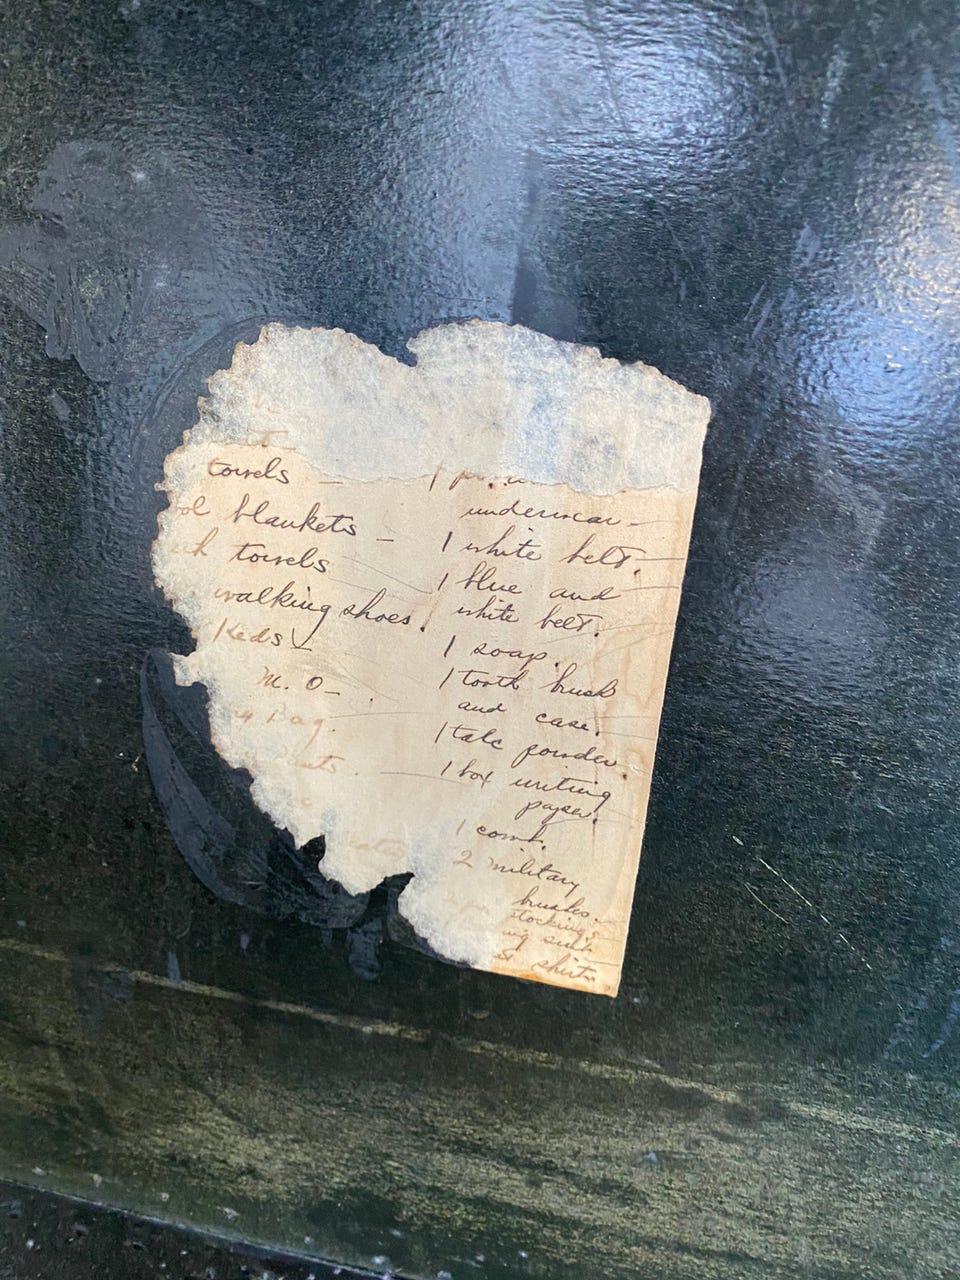 towels -
blankets -
towels
walking shoes.
Keds
M. O -
Bag.
1 pr.
underwear -
1 white belt.
1 blue and
white belt.
1 soap.
1 tooth brush
and case.
1 talc powder.
1 box writing
paper.
1 comb.
2 military
brushes.
stockings
suit
shirt